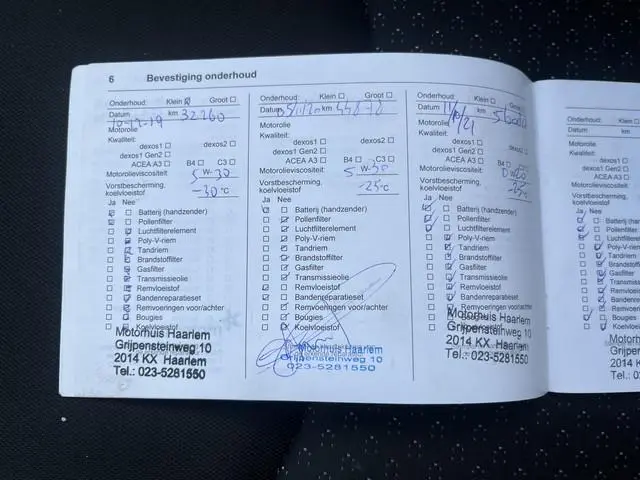 6 Bevestiging onderhoud
Onderhoud: Klein Groot
Datum 10-12-19 km 32260
Motorolie
Kwaliteit:
dexos1 dexos2
dexos1 Gen2
ACEA A3 B4 C3
Motorolieviscositeit: 5 W-30
Vorstbescherming,
koelvloeistof -30 °C
Ja Nee
Batterij (handzender)
Pollenfilter
Luchtfilterelement
Poly-V-riem
Tandriem
Brandstoffilter
Gasfilter
Transmissieolie
Remvloeistof
Bandenreparatieset
Remvoeringen voor/achter
Bougies
Koelvloeistof
Motorhuis Haarlem
Grijpensteinweg 10
2014 KX Haarlem
Tel.: 023-5281550
Onderhoud: Klein Groot
Datum km
Motorolie
Kwaliteit:
dexos1 dexos2
dexos1 Gen2
ACEA A3 B4 C3
Motorolieviscositeit: 5 W-30
Vorstbescherming,
koelvloeistof -25 °C
Ja Nee
Batterij (handzender)
Pollenfilter
Luchtfilterelement
Poly-V-riem
Tandriem
Brandstoffilter
Gasfilter
Transmissieolie
Remvloeistof
Bandenreparatieset
Remvoeringen voor/achter
Bougies
Koelvloeistof
Motorhuis Haarlem
Grijpensteinweg 10
023-5281550
Onderhoud: Klein Groot
Datum km
Motorolie
Kwaliteit:
dexos1 dexos2
dexos1 Gen2
ACEA A3 B4 C3
Motorolieviscositeit:
Vorstbescherming,
koelvloeistof
Ja Nee
Batterij (handzender)
Pollenfilter
Luchtfilterelement
Poly-V-riem
Tandriem
Brandstoffilter
Gasfilter
Transmissieolie
Remvloeistof
Bandenreparatieset
Remvoeringen voor/achter
Bougies
Koelvloeistof
Motorhuis Haarlem
Grijpensteinweg 10
2014 KX Haarlem
Tel.: 023-5281550
Onderhoud: Klein
Datum km
Motorolie
Kwaliteit:
dexos1
dexos1 Gen2
ACEA A3
Motorolieviscositeit:
Vorstbescherming,
koelvloeistof
Ja Nee
Batterij (hand
Pollenfilter
Luchtfilterele
Poly-V-riem
Tandriem
Brandstoffil
Gasfilter
Transmissi
Remvloeis
Bandenre
Remvoer
Bougies
Koelvloe
Motorhu
Grijpen
2014 K
Tel.: 02